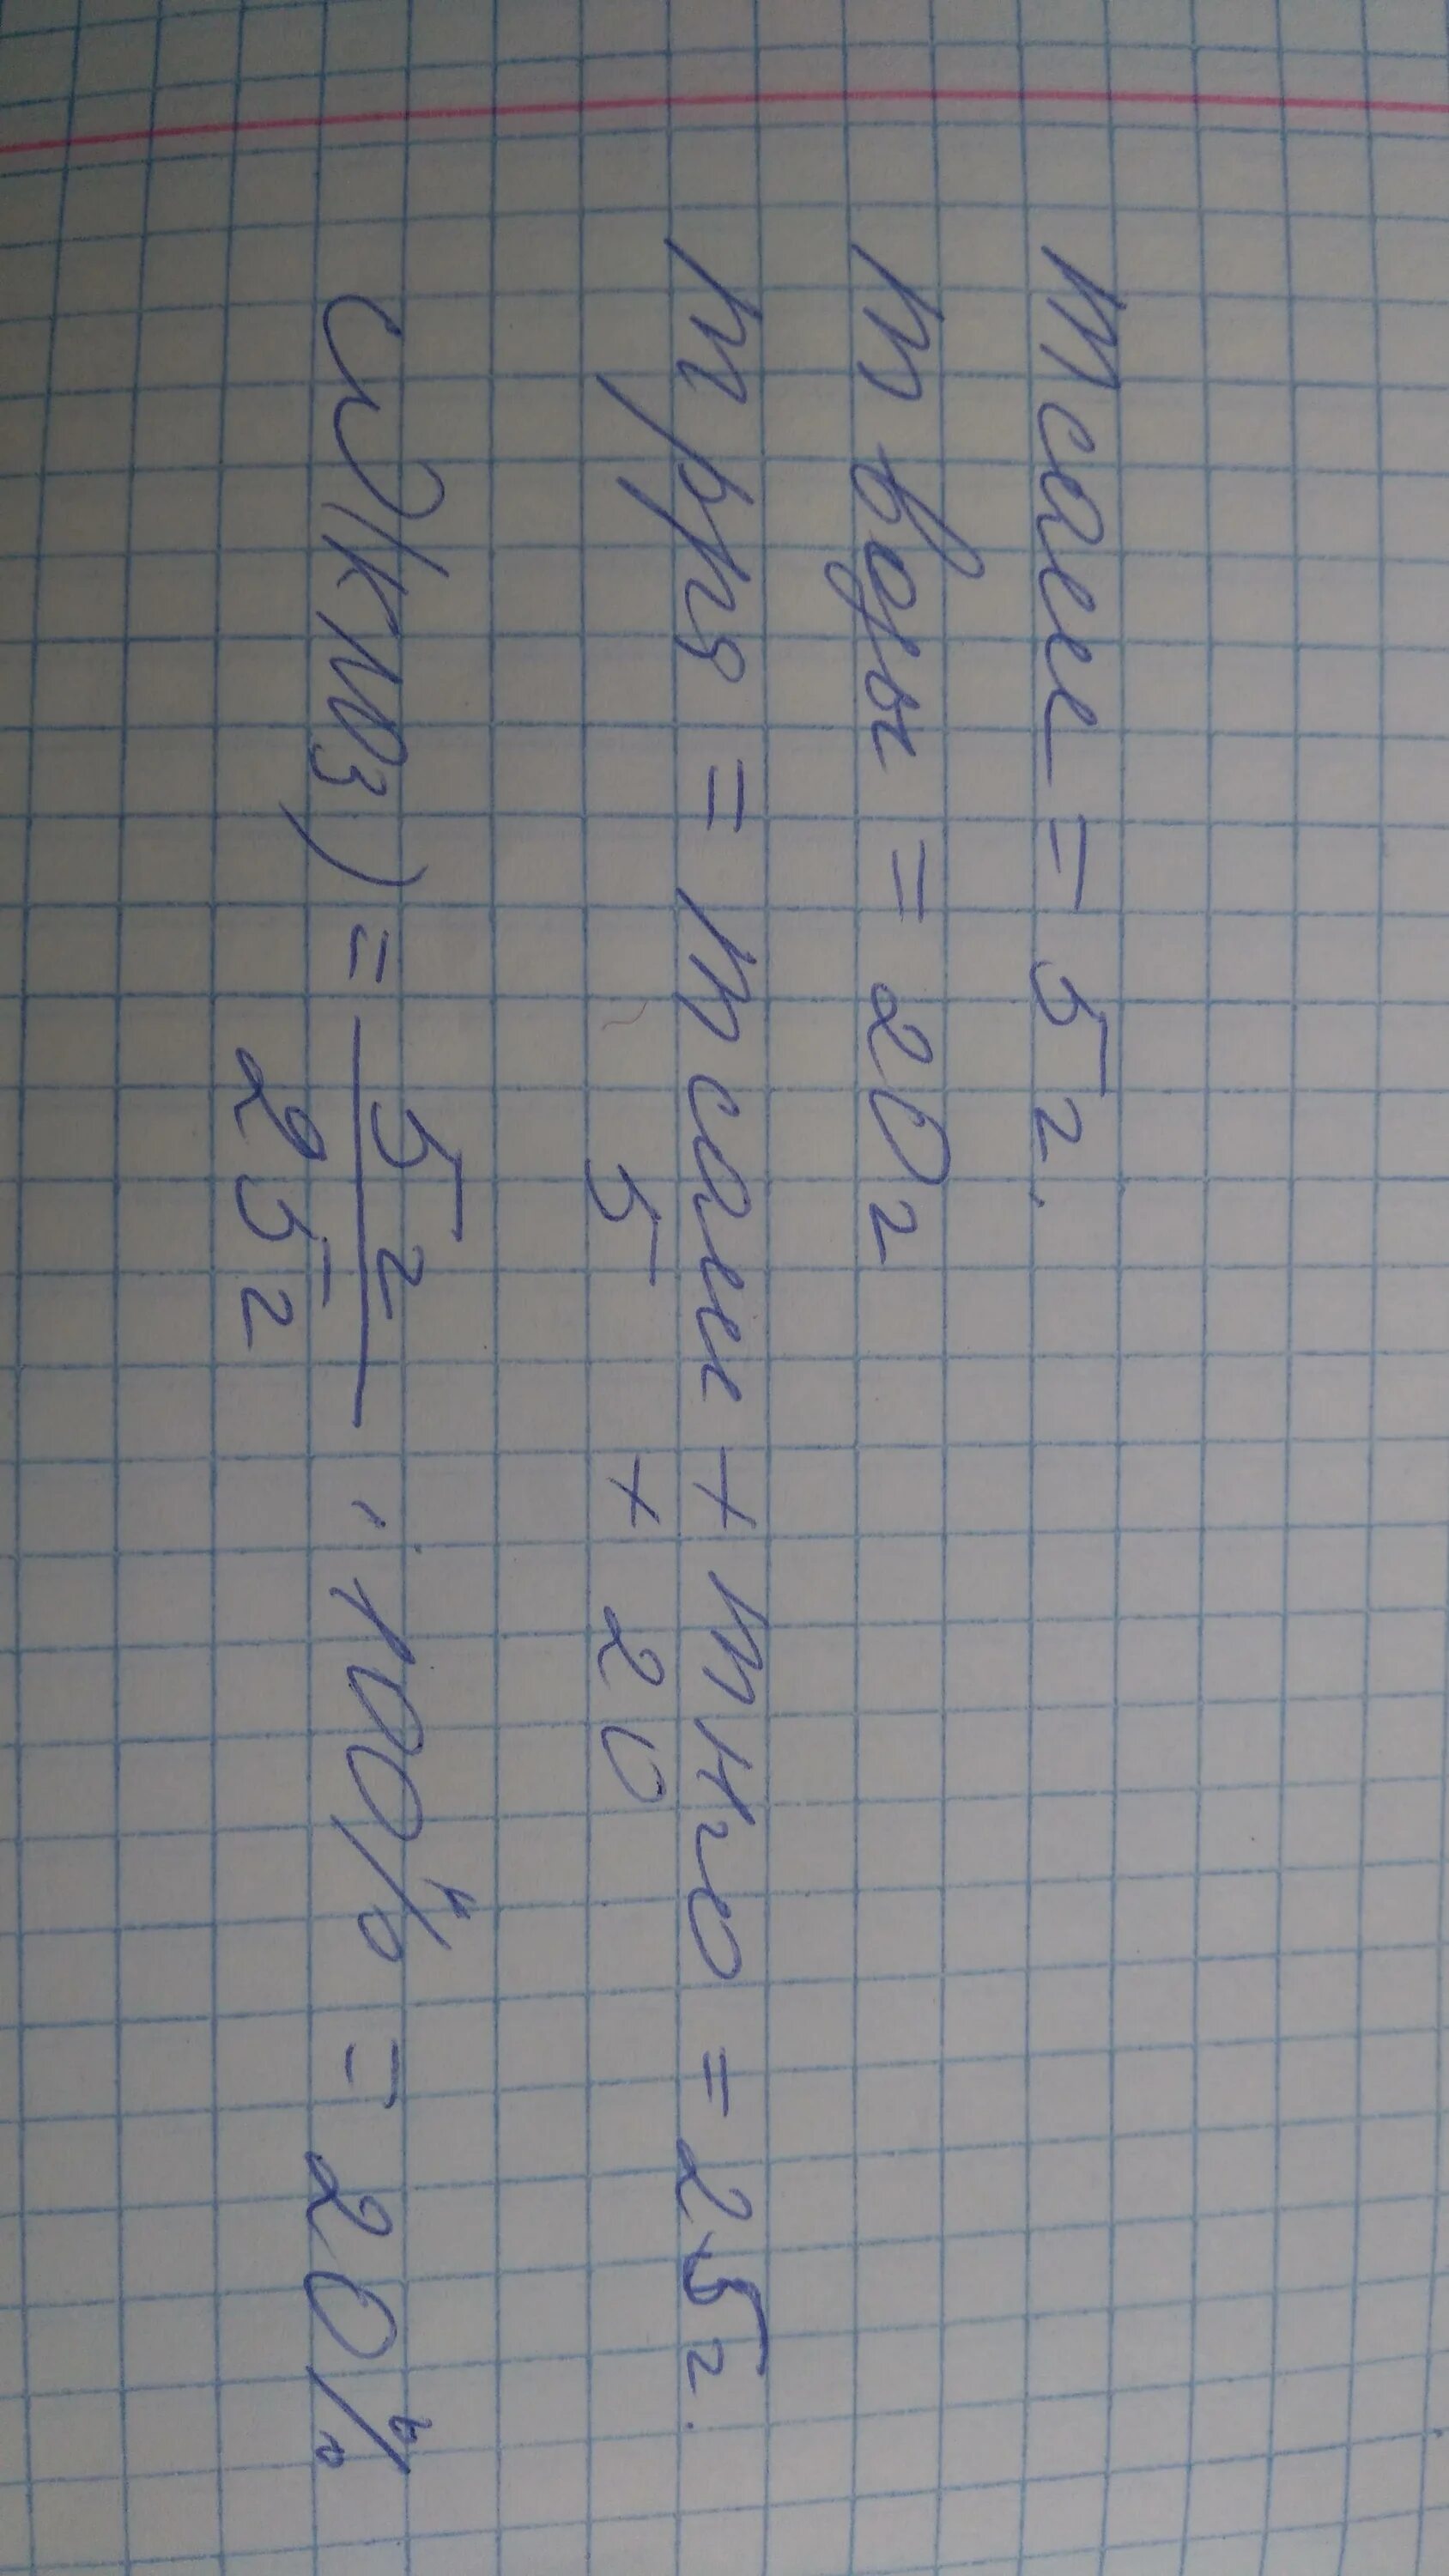 m соли = 5 г.
m воды = 20 г
m р-ра = m соли + m H2O = 25 г.
5 + 20
ω(KNO3) = 5 г / 25 г · 100% = 20%